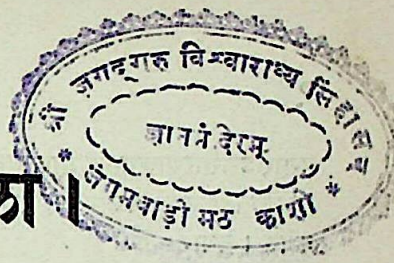 श्री जगद्गुरु विश्वाराध्य सिंहासन
ज्ञानमंदिरम्
* जंगमवाड़ी मठ काशी *
ला ।